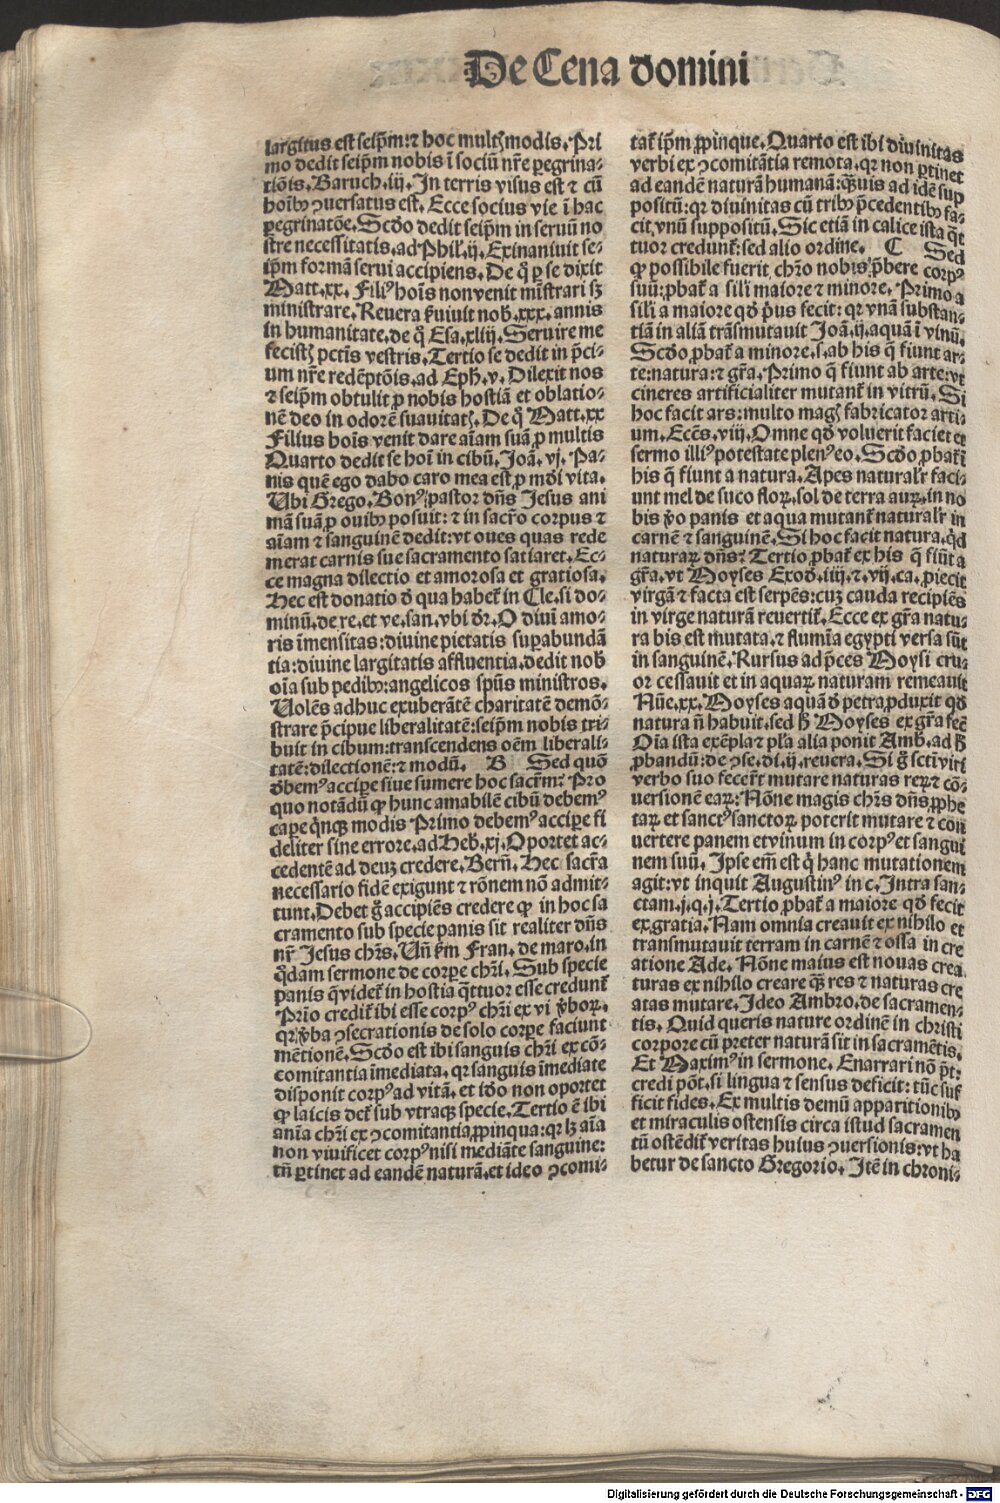 De Cena domini
largitus est seip̄m:⁊ hoc multꝭ modis. Pri
mo dedit seip̄m nobis ī sociū nr̄e ꝑegrina⸗
tiōis. Baruch .iij. In terris visus est ⁊ cū
hoībꝰ ꝯuersatus est. Ecce socius vie ī hac
ꝑegrinatōe. Scd̄o dedit seip̄m in seruū no
stre necessitatis. ad Phil̓. ij. Exinaniuit se⸗
ip̄m formā serui accipiens. De q̄ ꝑ se dixit
Matt. xx. Filiꝰ hoīs non venit mīstrari sꝫ
ministrare. Reuera ẜuiuit nob̓ .xxx. annis
in humanitate. de q̄ Esa. xliij. Seruire me
fecistꝭ pctīs vestris. Tertio se dedit in p̄ci⸗
um nr̄e redēptōis. ad Eph̓. v. Dilexit nos
⁊ seip̄m obtulit ꝓ nobis hostiā et oblatio⸗
nē deo in odorē suauitatꝭ. De q̄ Matt. xx
Filius hoīs venit dare aīam suā ꝓ multis
Quarto dedit se hoī in cibū. Joā. vj. Pa⸗
nis quē ego dabo caro mea est ꝓ mōi vita.
Ubi Grego. Bonꝰ pastor dn̄s Jesus ani
mā suā ꝓ ouibꝰ posuit: ⁊ in sacr̄o corpus ⁊
aīam ⁊ sanguinē dedit: vt oues quas rede
merat carnis sue sacramento satiaret. Ec⸗
ce magna dilectio et amorosa et gratiosa.
Hec est donatio ꝺ̄ qua habet̄ in Cle. si do⸗
minū. de re. et ve. san. vbi dr̄. O diuī amo⸗
ris īmensitas: diuine pietatis suꝑabundā
tia: diuine largitatis affluentia. dedit nob̓
oīa sub pedibꝰ: angelicos spūs ministros.
Uolēs adhuc exuberātē charitatē demō⸗
strare p̄cipue liberalitatē: seip̄m nobis tri⸗
buit in cibum: transcendens oēm liberali⸗
tatē: dilectionē: ⁊ modū. B Sed quō
ꝺ̄bemꝰ accipe siue sumere hoc sacrm̄? Pro
quo notādū ꝙ hunc amabilē cibū debemꝰ
cape q̄nqꝫ modis Primo debemꝰ accipe fi
deliter sine errore. ad Heb̓. xj. Oportet ac⸗
cedentē ad deuꝫ credere. Bern̄. Hec sacr̄a
necessario fidē exigunt ⁊ rōnem nō admit⸗
tunt. Debet g̊ accipiēs credere ꝙ in hoc sa
cramento sub specie panis sit realiter dn̄s
nr̄ Jesus chr̄s. Un̄ ẜm Fran. de maro. in
q̄dam sermone de corꝑe chr̄i. Sub specie
panis q̄ videt̄ in hostia q̄ttuor esse credunt̄
Prīo credit̄ ibi esse corpꝰ chr̄i ex vi ꝟboꝝ.
qꝛ ꝟba ꝯsecrationis de solo corꝑe faciunt
mētionē. Scd̄o est ibi sanguis chr̄i ex cō⸗
comitantia īmediata. qꝛ sanguis īmediate
disponit corpꝰ ad vitā. et iō̄o non oportet
ꝙ laicis det̄ sub vtraqꝫ specie. Tertio ē ibi
anīa chr̄i ex ꝯcomitantia ꝓpinqua: qꝛ lꝫ aīa
non viuificet corpꝰ nisi mediāte sanguine:
tn̄ ꝑtinet ad eandē naturā. et ideo ꝯcomi⸗
tat̄ ip̄m ꝓpinque. Quarto est ibi diuinitas
verbi ex ꝯcomitātia remota. qꝛ non ꝑtinet
ad eandē naturā humanā: qꝫuis ad idē sup
positū: qꝛ diuinitas cū tribꝰ p̄cedentibꝰ fa⸗
cit vnū suppositū. Sic etiā in calice ista q̄t
tuor credunt̄: sed alio ordine. C Sed
ꝙ possibile fuerit chr̄o nobis p̄bere corpꝰ
suū: ꝓbat̄ a sil̓i maiore ⁊ minore. Primo a
sil̓i a maiore qd̓ pꝰus fecit: qꝛ vnā substan⸗
tiā in aliā trāsmutauit Joā. ij. aquā ī vinū.
Scd̄o ꝓbat̄ a minore. s. ab his q̄ fiunt ar⸗
te: natura: ⁊ gr̄a. Primo q̄ fiunt ab arte: vt
cineres artificialiter mutant̄ in vitrū. Si
hoc facit ars: multo magꝭ fabricator arti⸗
um. Eccs̄. viij. Omne qd̓ voluerit faciet et
sermo illiꝰ potestate plenꝰ eo. Scd̄o ꝓbat̄ ī
his q̄ fiunt a natura. Apes naturalr̓ faci⸗
unt mel de suco floꝝ. sol de terra auꝝ. in no
bis ꝟo panis et aqua mutant̄ naturalr̓ in
carnē ⁊ sanguinē. Si hoc facit natura. q̄d
naturaꝝ dn̄s? Tertio ꝓbat̄ ex his q̄ fiūt a
gr̄a. vt Moyses Exod̓. iiij. ⁊. vij. ca. ꝓiecit
virgā ⁊ facta est serpēs: cuꝫ cauda recipiēs
in virge naturā reuertit̄. Ecce ex gr̄a natu⸗
ra bis est mutata. ⁊ flumīa egypti versa sūt
in sanguinē. Rursus ad p̄ces Moysi cru⸗
or cessauit et in aquaꝝ naturam remeauit
Nūe. xx. Moyses aquā ꝺ̄ petra ꝓduxit qd̓
natura n̄ habuit. sed ꝧ Moyses ex gr̄a fec̄
Oīa ista exēpla ⁊ pl̓a alia ponit Amb̓. ad ꝧ
ꝓbandū: de ꝯse. di. ij. reuera. Si g̊ sctī viri
verbo suo fecer̄t mutare naturas reꝝ ⁊ cō⸗
uersionē eaꝝ: Nōne magis chr̄s dn̄s ꝓphe
taꝝ et sanctꝰ sanctoꝝ poterit mutare ⁊ con
uertere panem et vinum in corpꝰ et sangui
nem suū. Ipse em̄ est q̇ hanc mutationem
agit: vt inquit Augustinꝰ in c. Intra san⸗
ctam. j. q. j. Tertio ꝓbat̄ a maiore qd̓ fecit
ex gratia. Nam omnia creauit ex nihilo et
transmutauit terram in carnē ⁊ ossa in cre
atione Ade. Nōne maius est nouas crea
turas ex nihilo creare qꝫ res ⁊ naturas cre
atas mutare. Ideo Ambro. de sacramen⸗
tis. Quid queris nature ordinē in christi
corpore cū preter naturā sit in sacramētis.
Et Maximꝰ in sermone. Enarrari nō p̄t:
credi pōt. si lingua ⁊ sensus deficit: tūc suf
ficit fides. Ex multis demū apparitionibꝰ
et miraculis ostensis circa istud sacramen
tū ostēdit̄ veritas huius ꝯuersionis: vt ha
betur de sancto Gregorio. Itē in chroni⸗
Digitalisierung gefördert durch die Deutsche Forschungsgemeinschaft - DFG